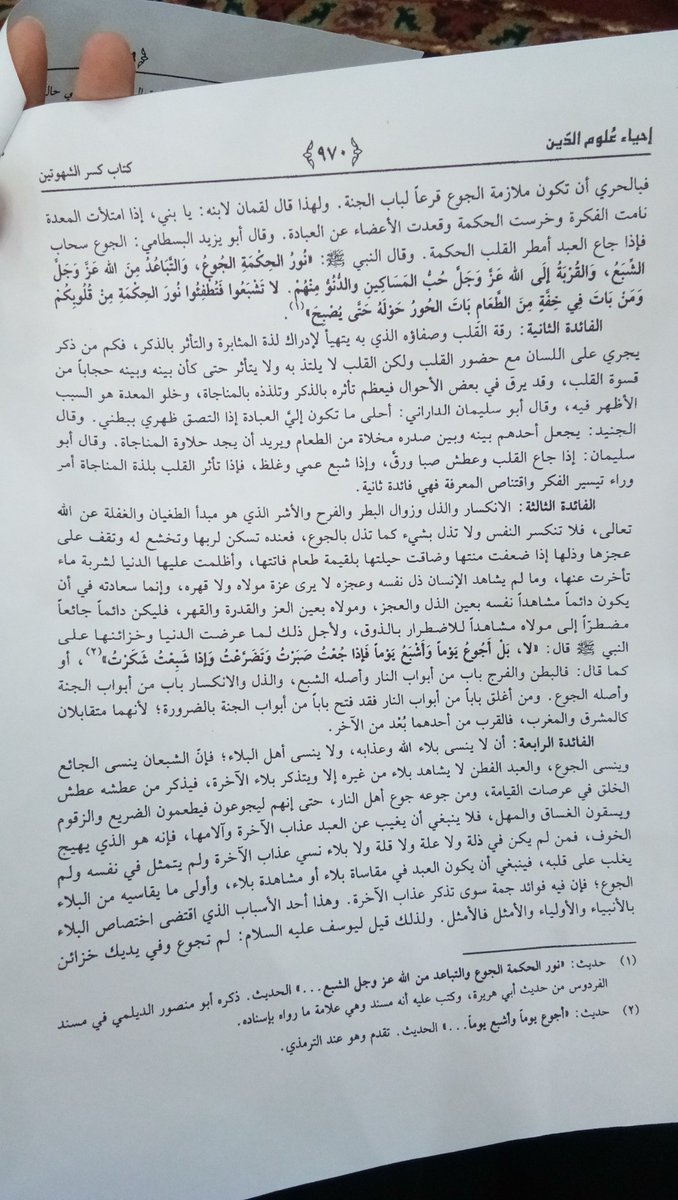 إحياء عُلوم الدّين
٩٧٠
كتاب كسر الشهوتين
فبالحري أن تكون ملازمة الجوع قرعاً لباب الجنة. ولهذا قال لقمان لابنه: يا بني، إذا امتلأت المعدة
نامت الفكرة وخرست الحكمة وقعدت الأعضاء عن العبادة. وقال أبو يزيد البسطامي: الجوع سحاب
فإذا جاع العبد أمطر القلب الحكمة. وقال النبي ﷺ: «نُورُ الحِكْمَةِ الجُوعُ، وَالتَّبَاعُدُ مِنَ الله عَزَّ وَجَلَّ
الشِّبَعُ، وَالقُرْبَةُ إِلَى الله عَزَّ وَجَلَّ حُبُّ المَسَاكِينِ وَالدُّنُوُّ مِنْهُمْ. لا تَشْبَعُوا فَتُطْفِئُوا نُورَ الحِكْمَةِ مِنْ قُلُوبِكُمْ
وَمَنْ بَاتَ فِي خِفَّةٍ مِنَ الطَّعَامِ بَاتَ الحُورُ حَوْلَهُ حَتَّى يُصْبِحَ»(١).
الفائدة الثانية: رقة القلب وصفاؤه الذي به يتهيأ لإدراك لذة المثابرة والتأثر بالذكر، فكم من ذكر
يجري على اللسان مع حضور القلب ولكن القلب لا يلتذ به ولا يتأثر حتى كأن بينه وبينه حجاباً من
قسوة القلب، وقد يرق في بعض الأحوال فيعظم تأثره بالذكر وتلذذه بالمناجاة، وخلو المعدة هو السبب
الأظهر فيه، وقال أبو سليمان الداراني: أحلى ما تكون إليَّ العبادة إذا التصق ظهري ببطني. وقال
الجنيد: يجعل أحدهم بينه وبين صدره مخلاة من الطعام ويريد أن يجد حلاوة المناجاة. وقال أبو
سليمان: إذا جاع القلب وعطش صبا ورقَّ، وإذا شبع عمي وغلظ، فإذا تأثر القلب بلذة المناجاة أمر
وراء تيسير الفكر واقتناص المعرفة فهي فائدة ثانية.
الفائدة الثالثة: الانكسار والذل وزوال البطر والفرح والأشر الذي هو مبدأ الطغيان والغفلة عن الله
تعالى، فلا تنكسر النفس ولا تذل بشيء كما تذل بالجوع، فعنده تسكن لربها وتخشع له وتقف على
عجزها وذلها إذا ضعفت منتها وضاقت حيلتها بلقيمة طعام فاتتها، وأظلمت عليها الدنيا لشربة ماء
تأخرت عنها، وما لم يشاهد الإنسان ذل نفسه وعجزه لا يرى عزة مولاه ولا قهره، وإنما سعادته في أن
يكون دائماً مشاهداً نفسه بعين الذل والعجز، ومولاه بعين العز والقدرة والقهر، فليكن دائماً جائعاً
مضطراً إلى مولاه مشاهداً للاضطرار بالذوق، ولأجل ذلك لما عرضت الدنيا وخزائنها على
النبي ﷺ قال: «لا، بَلْ أَجُوعُ يَوْماً وَأَشْبَعُ يَوْماً فَإِذا جُعْتُ صَبَرْتُ وَتَضَرَّعْتُ وَإِذا شَبِعْتُ شَكَرْتُ»(٢)، أو
كما قال: فالبطن والفرج باب من أبواب النار وأصله الشبع، والذل والانكسار باب من أبواب الجنة
وأصله الجوع. ومن أغلق باباً من أبواب النار فقد فتح باباً من أبواب الجنة بالضرورة؛ لأنهما متقابلان
كالمشرق والمغرب، فالقرب من أحدهما بُعْد من الآخر.
الفائدة الرابعة: أن لا ينسى بلاء الله وعذابه، ولا ينسى أهل البلاء؛ فإنّ الشبعان ينسى الجائع
وينسى الجوع، والعبد الفطن لا يشاهد بلاء من غيره إلا ويتذكر بلاء الآخرة، فيذكر من عطشه عطش
الخلق في عرصات القيامة، ومن جوعه جوع أهل النار، حتى إنهم ليجوعون فيطعمون الضريع والزقوم
ويسقون الغساق والمهل، فلا ينبغي أن يغيب عن العبد عذاب الآخرة وآلامها، فإنه هو الذي يهيج
الخوف، فمن لم يكن في ذلة ولا علة ولا قلة ولا بلاء نسي عذاب الآخرة ولم يتمثل في نفسه ولم
يغلب على قلبه، فينبغي أن يكون العبد في مقاساة بلاء أو مشاهدة بلاء، وأولى ما يقاسيه من البلاء
الجوع؛ فإن فيه فوائد جمة سوى تذكر عذاب الآخرة. وهذا أحد الأسباب الذي اقتضى اختصاص البلاء
بالأنبياء والأولياء والأمثل فالأمثل. ولذلك قيل ليوسف عليه السلام: لم تجوع وفي يديك خزائن
(١) حديث: «نور الحكمة الجوع والتباعد من الله عز وجل الشبع...» الحديث. ذكره أبو منصور الديلمي في مسند
الفردوس من حديث أبي هريرة، وكتب عليه أنه مسند وهي علامة ما رواه بإسناده.
(٢) حديث: «أجوع يوماً وأشبع يوماً...» الحديث. تقدم وهو عند الترمذي.